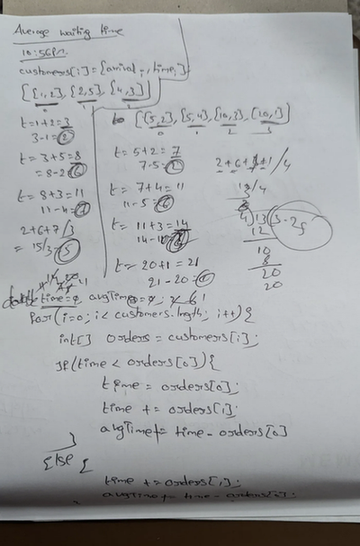 Average waiting time
10:56Pm
customers[i] = [arrival i, time i]
[[1,2], [2,5], [4,3]]
t = 1+2 = 3
3-1 = 2
t = 3+5 = 8
= 8-2 = 6
t = 8+3 = 11
11-4 = 7
2+6+7 / 3
= 15/3 = 5
[[5,2], [5,4], [10,3], [20,1]]
0 1 2 3
t = 5+2 = 7
7-5 =
t = 7+4 = 11
11-5 = 6
t = 11+3 = 14
14-10 = 4
t = 20+1 = 21
21-20 = 1
2+6+4+1/4
13/4
4) 13 (3.25
12
10
8
20
20
double time = 0, avgTime
for(i=0; i< customers.length; i++) {
int[] orders = customers[i];
if (time < orders[0]) {
time = orders[0];
time += orders[1];
avgTime += time - orders[0]
}
else {
time += orders[1];
avgTime += time - orders[0];